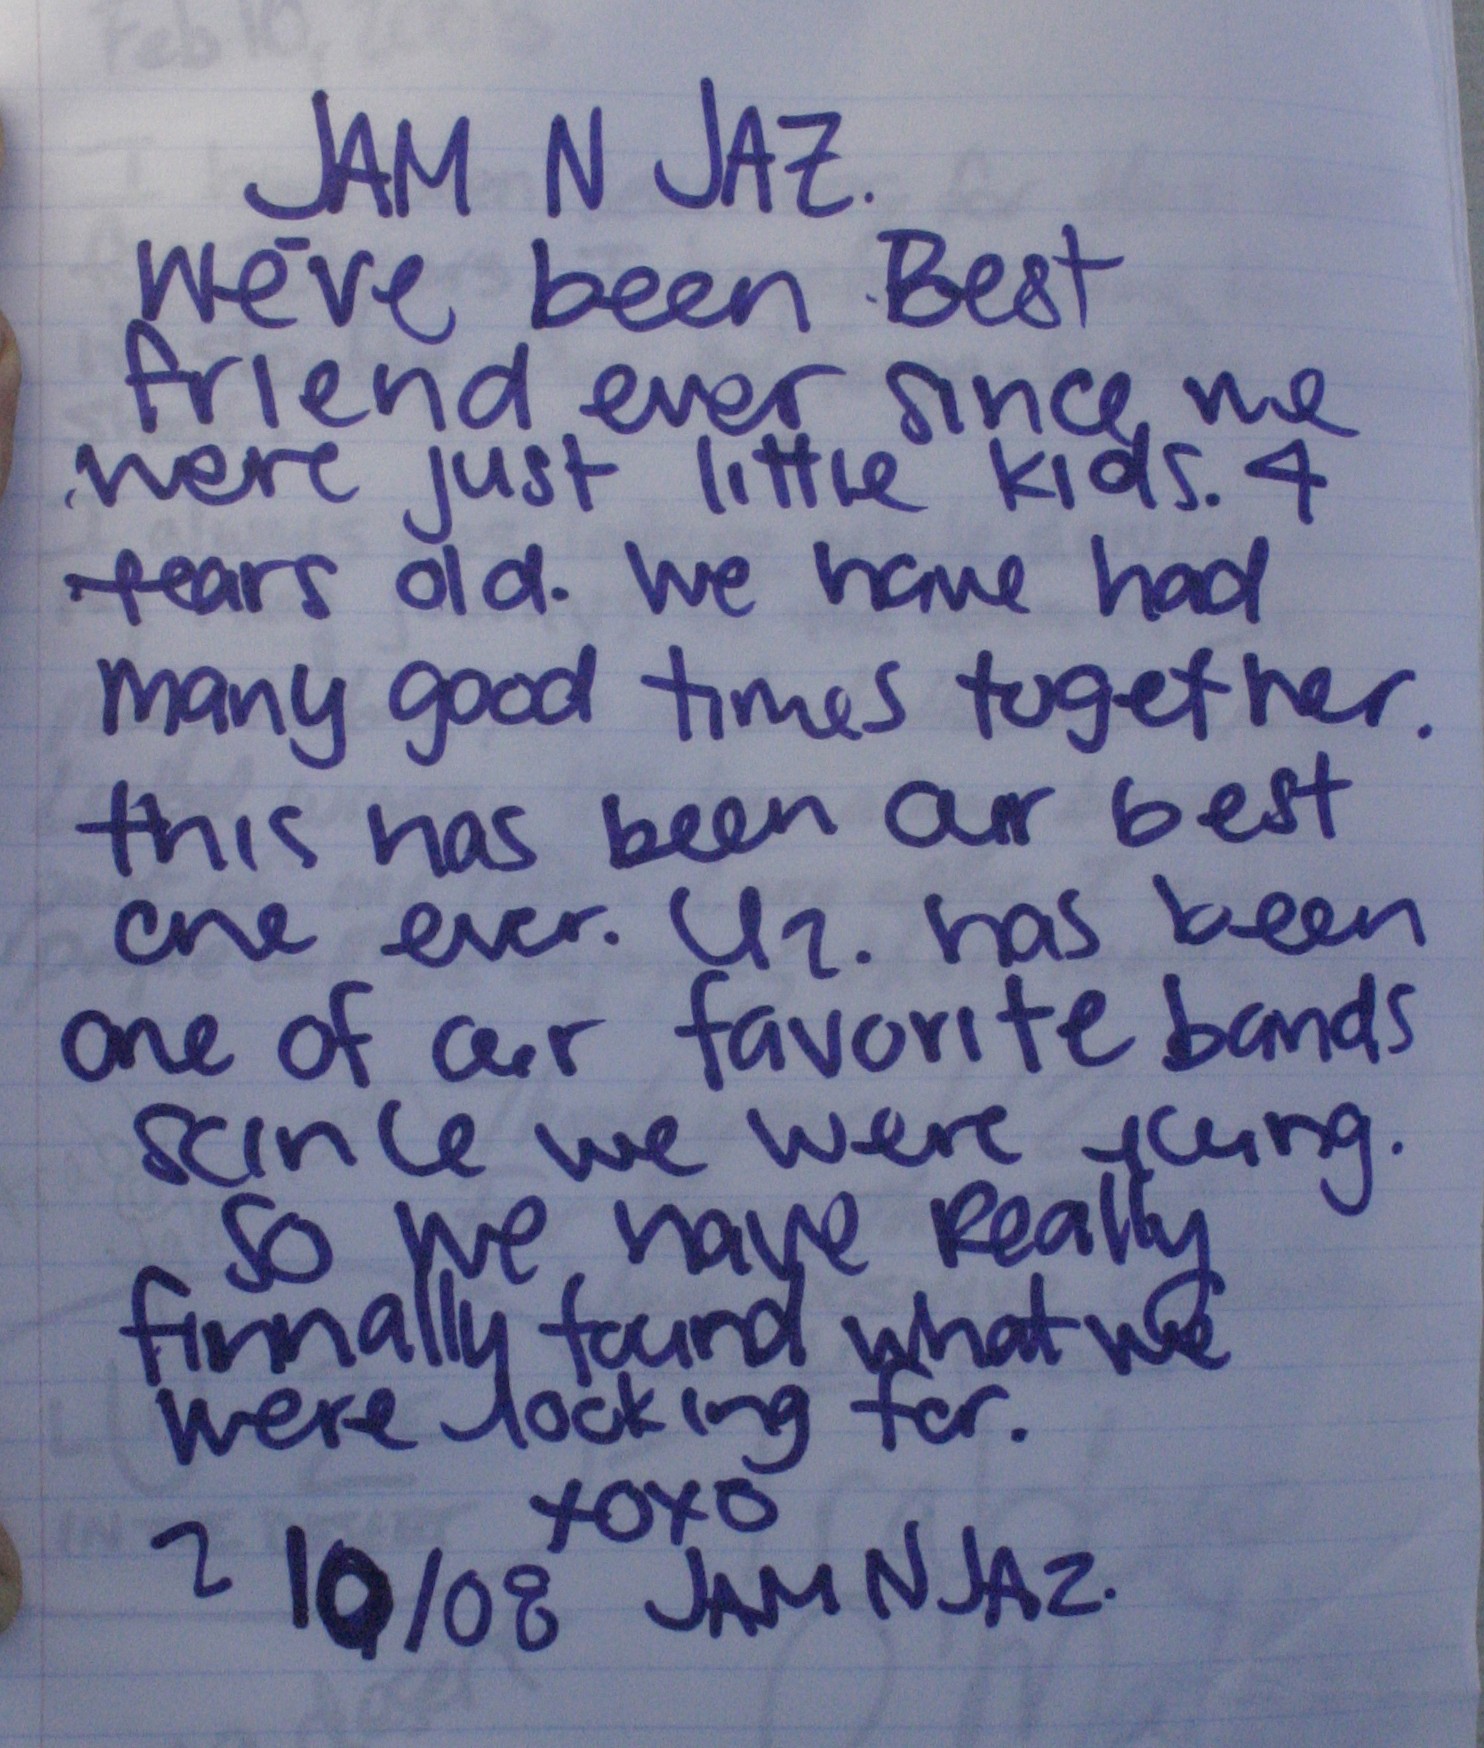 JAM N JAZ.
we've been Best
friend ever since we
were just little kids. 4
years old. we have had
many good times together.
this has been our best
one ever. U2. has been
one of our favorite bands
scince we were young.
So we have Really
finnally found what we
were looking for.
xoxo
2 10/08 JAM N JAZ.